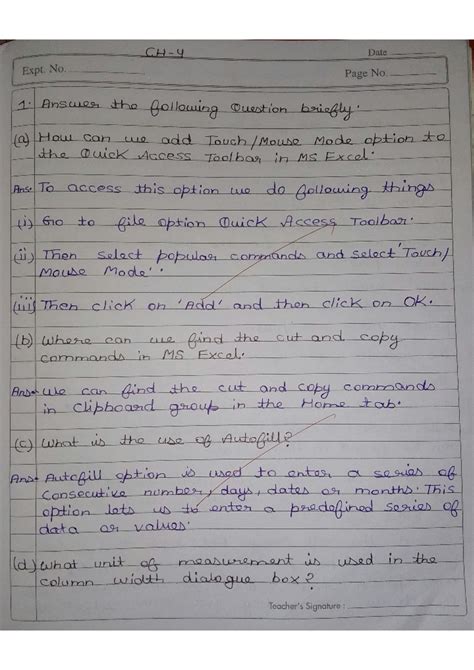 CH-4
Date
Expt. No.
Page No.
1. Answer the following Question briefly.
(a) How can we add Touch/Mouse Mode option to
the Quick Access Toolbar in MS Excel.
Ans: To access this option we do following things
(i) Go to file option Quick Access Toolbar.
(ii) Then select popular commands and select 'Touch/
Mouse Mode'.
(iii) Then click on 'Add' and then click on OK.
(b) Where can we find the cut and copy
commands in MS Excel.
Ans- We can find the cut and copy commands
in clipboard group in the Home tab.
(c) What is the use of Autofill?
Ans- Autofill option is used to enter a series of
consecutive number, days, dates or months. This
option lets us to enter a predefined series of
data or values.
(d) What unit of measurement is used in the
column width dialogue box?
Teacher's Signature :